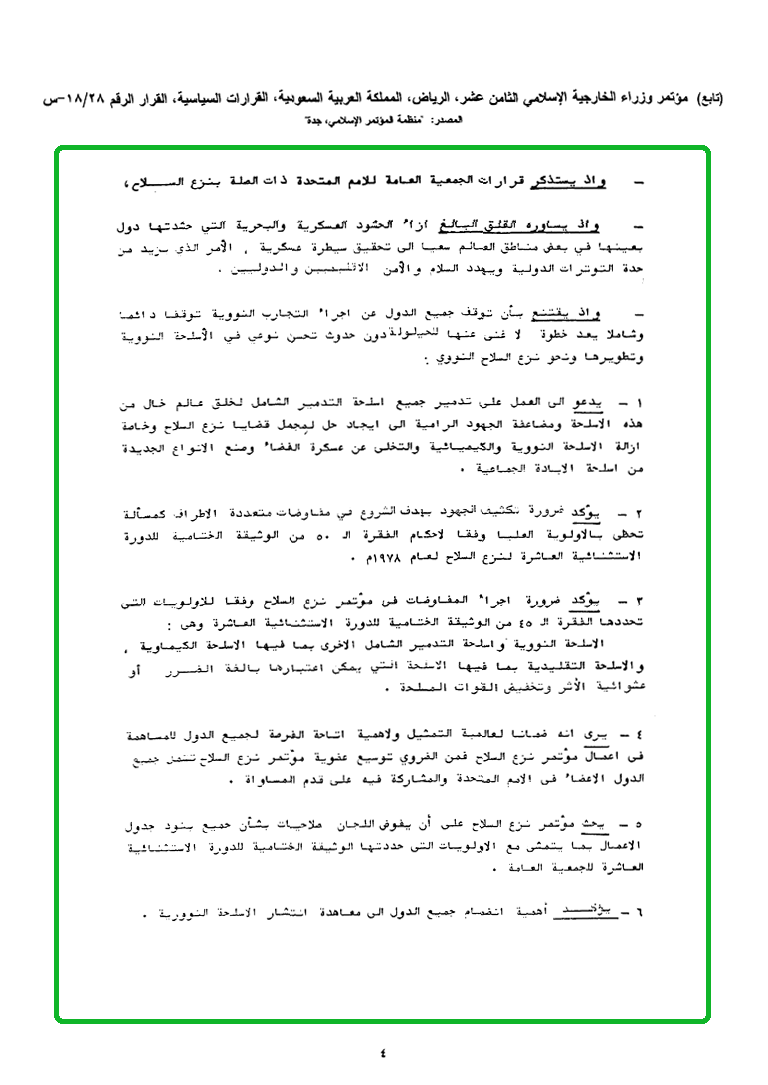 (تابع) مؤتمر وزراء الخارجية الإسلامي الثامن عشر، الرياض، المملكة العربية السعودية، القرارات السياسية، القرار الرقم ١٨/٢٨-س
المصدر: "منظمة المؤتمر الإسلامي، جدة"
– واذ يستذكر قرارات الجمعية العامة للامم المتحدة ذات الصلة بنزع السلاح،
– واذ يساوره القلق البالغ ازاء الحشود العسكرية والبحرية التي حشدتها دول
بعينها في بعض مناطق العالم سعيا الى تحقيق سيطرة عسكرية ، الأمر الذي يزيد من
حدة التوترات الدولية ويهدد السلام والأمن الاقليميين والدوليين .
– واذ يقتنع بأن توقف جميع الدول عن اجراء التجارب النووية توقفا دائما
وشاملا يعد خطوة لا غنى عنها للحيلولة دون حدوث تحسن نوعي في الأسلحة النووية
وتطويرها ونحو نزع السلاح النووي :
١ – يدعو الى العمل على تدمير جميع اسلحة التدمير الشامل لخلق عالم خال من
هذه الاسلحة ومضاعفة الجهود الرامية الى ايجاد حل لمجمل قضايا نزع السلاح وخاصة
ازالة الاسلحة النووية والكيميائية والتخلى عن عسكرة الفضاء وصنع الانواع الجديدة
من اسلحة الابادة الجماعية .
٢ – يؤكد ضرورة تكثيف الجهود بهدف الشروع في مفاوضات متعددة الاطراف كمسألة
تحظى بالاولوية العليا وفقا لاحكام الفقرة الـ ٥٠ من الوثيقة الختامية للدورة
الاستثنائية العاشرة لنزع السلاح لعام ١٩٧٨م .
٣ – يؤكد ضرورة اجراء المفاوضات فى مؤتمر نزع السلاح وفقا للاولويات التى
تحددها الفقرة الـ ٤٥ من الوثيقة الختامية للدورة الاستثنائية العاشرة وهى :
الاسلحة النووية واسلحة التدمير الشامل الاخرى بما فيها الاسلحة الكيماوية ،
والاسلحة التقليدية بما فيها الاسلحة التي يمكن اعتبارها بالغة الضرر أو
عشوائية الأثر وتخفيض القوات المسلحة .
٤ – يرى انه ضمانا لعالمية التمثيل ولاهمية اتاحة الفرصة لجميع الدول للمساهمة
فى اعمال مؤتمر نزع السلاح فمن الضروي توسيع عضوية مؤتمر نزع السلاح تشمل جميع
الدول الاعضاء فى الامم المتحدة والمشاركة فيه على قدم المساواة .
٥ – يحث مؤتمر نزع السلاح على أن يفوض اللجان صلاحيات بشأن جميع بنود جدول
الاعمال بما يتمشى مع الاولويات التى حددتها الوثيقة الختامية للدورة الاستثنائية
العاشرة للجمعية العامة .
٦ – يؤكد أهمية انضمام جميع الدول الى معاهدة انتشار الاسلحة النوورية .
٤